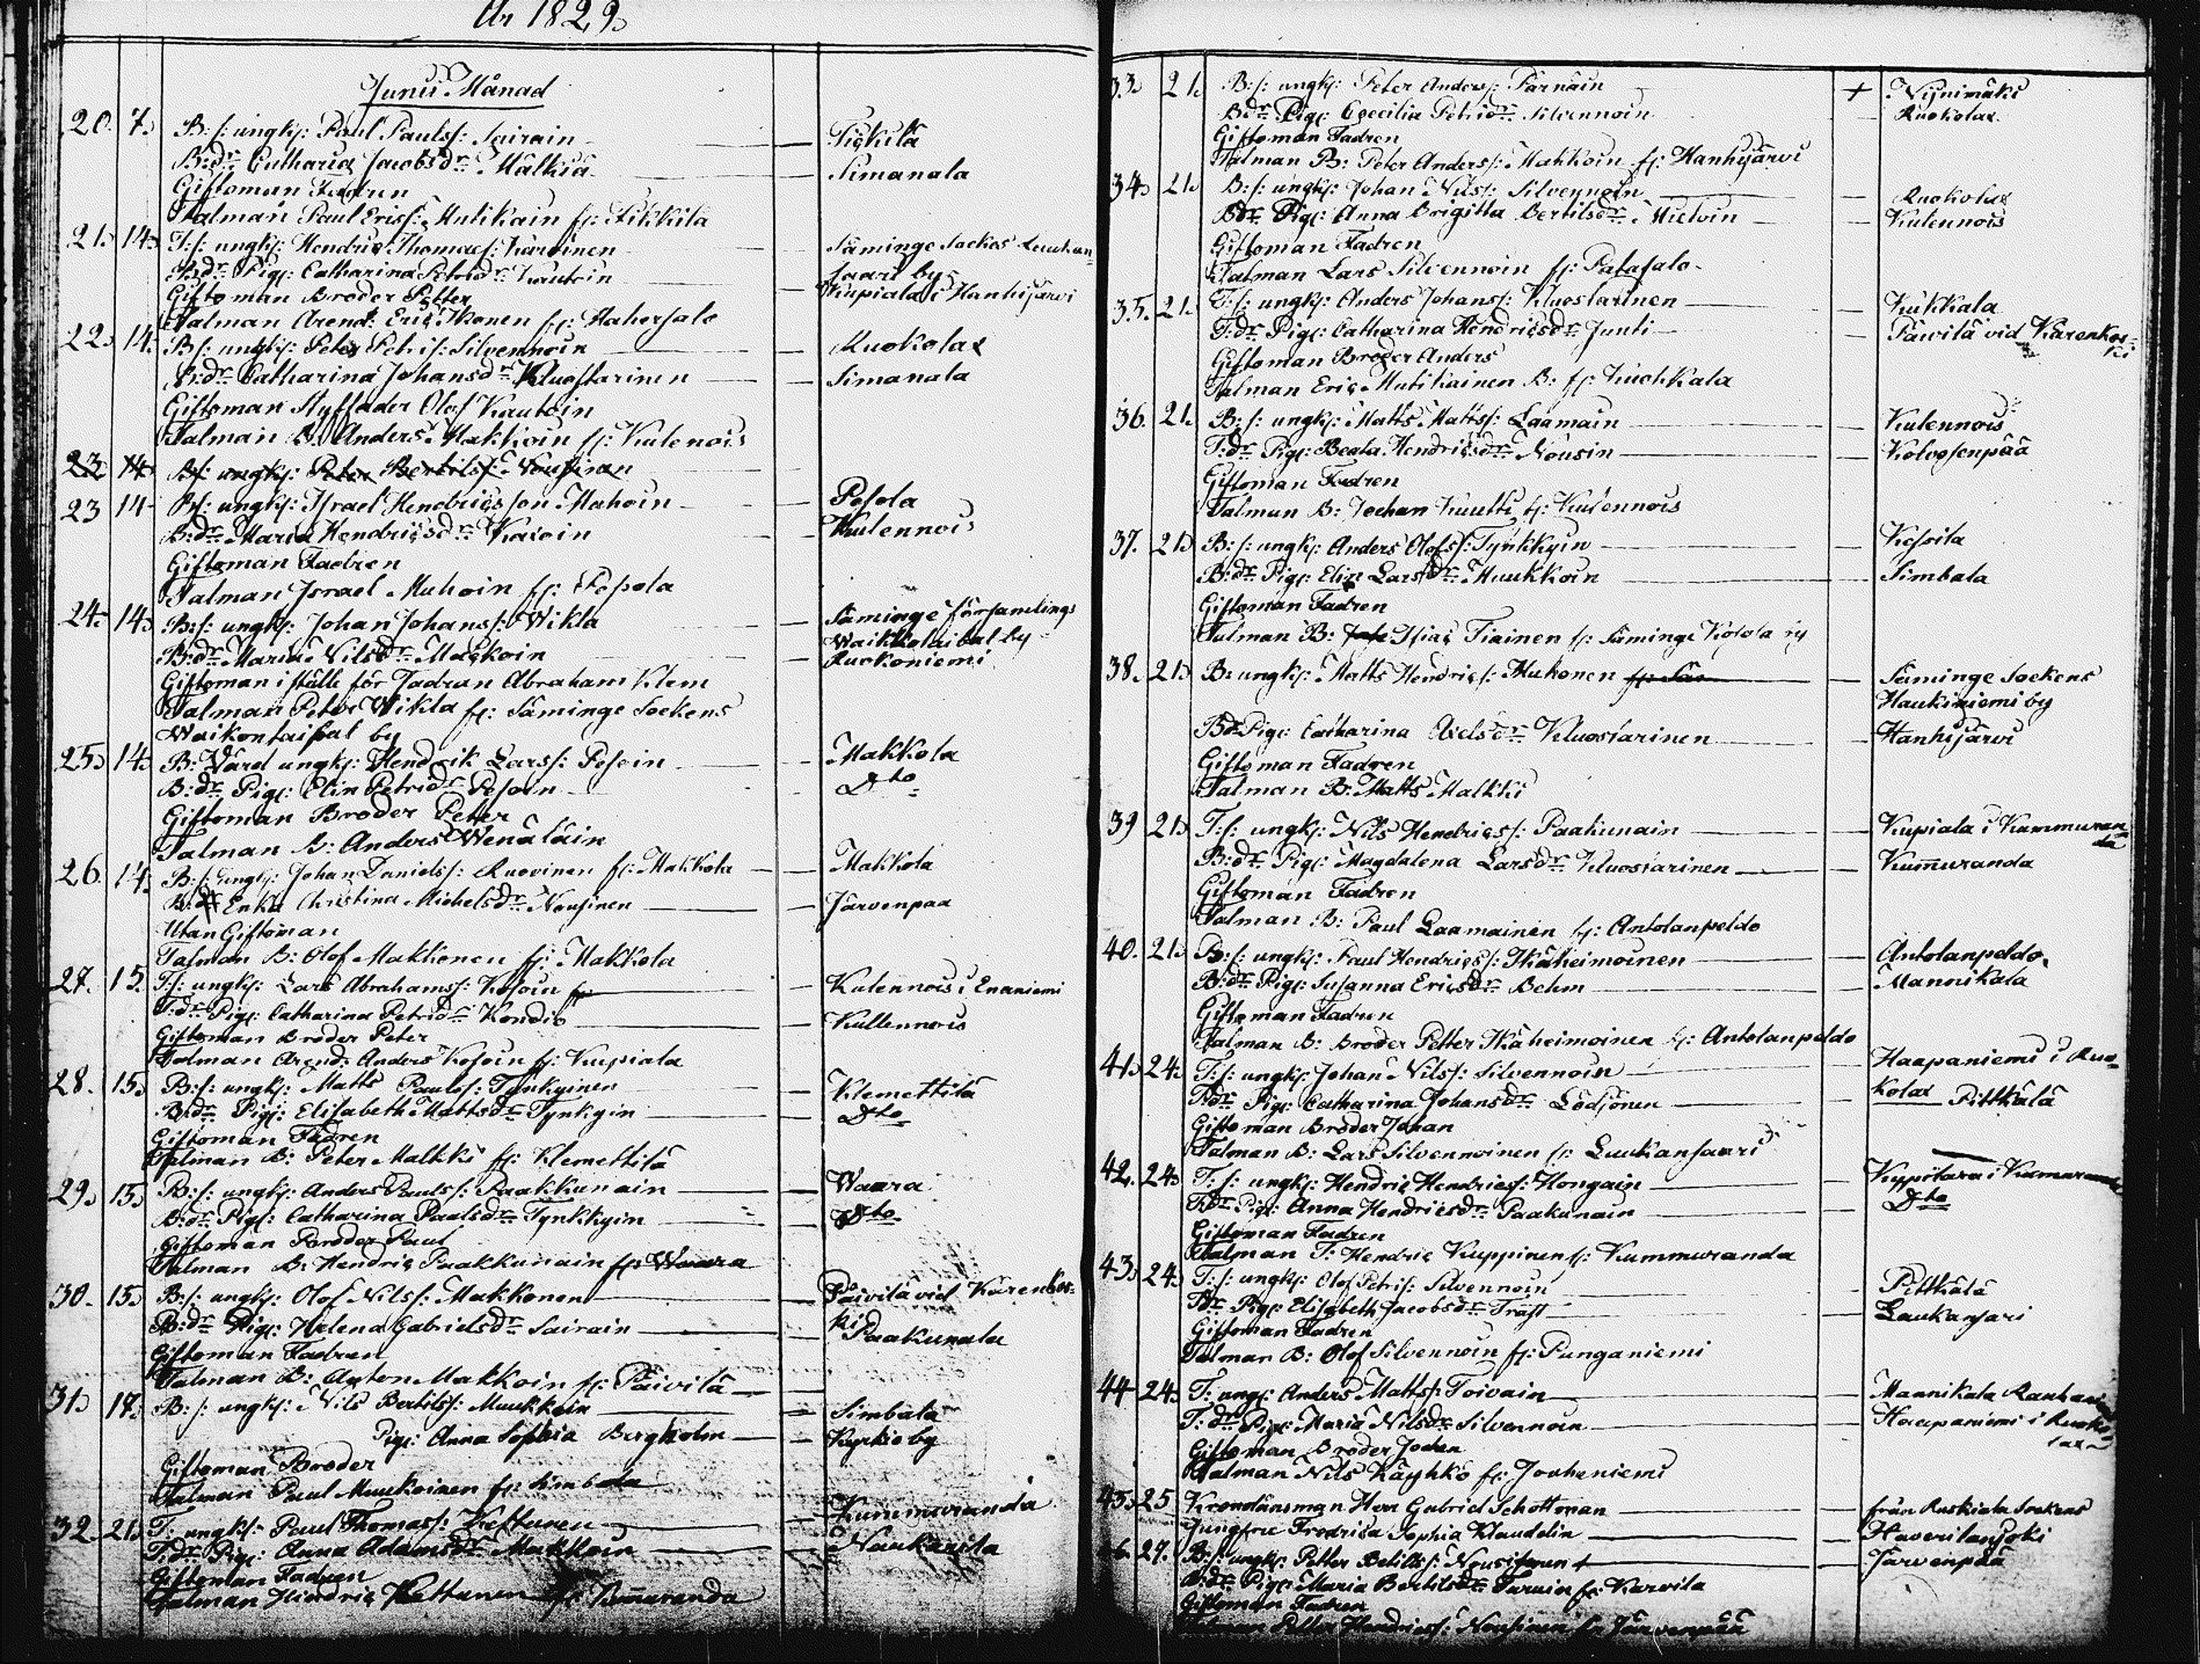 År 1829
Junii Månad
20. 7. B:s: ungk: Paul Pauls: Sairain — Fiskilä
B:dr Catharia Jacobsdr Malkiä — Simanala
Giftoman Fadren
Talman Paul Erics: Mutikain fr: Fikkilä
21. 14. T:s: ungk: Hendric Thomaes: Karvinen — Säminge Sockes Luukan-
B:dr Pig: Catharina Petridr Kautoin — saari by
Giftoman Broder Petter — Kupiala i Hanhijärvi
Talman Arend: Eric Ikonen fr: Mahersalo
22. 14. B:s: ungk: Peter Petris: Silvennoin — Ruokolax
B:dr Catharina Johansdr Kluostarinen — Simanala
Giftoman Styffader Olof Kautoin
Talman B: Anders Makkoin fr: Kulenois
23 14 B:s: ungk: Peter Bertils: Nousinen
23 14 B:s: ungk: Israel Hendricsson Mahoin — Pesola
B:dr Maria Hendricsdr Karoin — Kulennois
Giftoman Fadren
Talman Israel Muhoin fr: Pesola
24. 14. B:s: ungk: Johan Johans: Wikla — Säminge församlings
B:dr Maria Nilsdr Mackoin — by
Giftoman i ställe för Fadran Abraham Klem — Ruokoniemi
Talman Peter Wikla fr: Säminge Sockens
Waikontaipal by
25. 14. B: Värd ungk: Hendrik Lars: Pesoin — Makkola
B:dr Pig: Elin Petridr Pesoin — Dto
Giftoman Broder Petter
Talman B: Anders Wenäläin
26. 14. B:s: ungk: Johan Daniels: Ruovinen fr: Makkola — Makkola
B:dr Enka Christina Michelsdr Nousinen — Järvenpää
Utan Giftoman
Talman B: Olof Makkonen fr: Makkola
27. 15. T:s: ungk: Lars Abrahams: Kosoin fr — Kulennois i Enaniemi
T:dr Pig: Catharina Petridr Kondio — Kullennois
Giftoman Broder Peter
Talman Arend: Anders Kosoin fr: Kupiala
28. 15. B:s: ungk: Matts Pauls: Tynkyinen — Klemettilä
B:dr Pig: Elisabeth Mattsdr Tynkyin — Dto
Giftoman Fadren
Talman B: Peter Malkki fr: Klemettilä
29. 15. B:s: ungk: Anders Pauls: Paakkunain — Waara
B:dr Pig: Catharina Paulsdr Tynkkyin — Dto
Giftoman Broder Paul
Talman B: Hendric Paakkunain fr: Waara
30. 15. B:s: ungk: Olof Nils: Makkonen — Päivilä vid Karenkos-
B:dr Pig: Helena Gabrielsdr Sairain — ki Paakunala
Giftoman Fadren
Talman B: Anton Makkoin fr: Päivilä
31. 18. B:s: ungk: Nils Bertils: Muukkoin — Simbala
Pig: Anna Sophia Bergholm — Kyrkioby
Giftoman Broder
Talman Paul Muukoinen fr: Simbala
32. 21. T: ungk: Paul Thomas: Kettunen — Kummuranda
T:dr Pig: Anna Adamsdr Makkoin — Naukarila
Giftoman Fadren
Talman Hindric Kettunen fr: Kum̄uranda
33. 21. B:s: ungk: Peter Anders: Pärnäin — + Nynimäki
B:dr Pig: Coecilia Petridr Silvennoin — Ruokolax
Giftoman Fadren
Talman B: Peter Anders: Makkoin fr: Hanhijärvi
34. 21. B:s: ungk: Johan Nils: Silvennoin — Ruokolax
B:dr Pig: Anna Brigitta Bertilsdr — Kulennois
Giftoman Fadren
Talman Lars Silvennoin fr: Patasalo
35. 21. T:s: ungk: Anders Johans: Kluostarinen — Kukkala
T:dr Pig: Catharina Hendricsdr Junti — Päivilä vid Karenkos-
Giftoman Broder Anders — ki
Talman Eric Mutikainen B: fr: Kuokkala
36. 21. B:s: ungk: Matts Matts: Laamain — Kulennois
T:dr Pig: Beata Hendricsdr Nousin — Kolvosenpää
Giftoman Fadren
Talman B: Jochan Kuutti fr: Kulennois
37. 21. B:s: ungk: Anders Olofs: Tynkkyin — Kesvila
B:dr Pig: Elin Larsdr Muukkoin — Simbala
Giftoman Fadren
Talman B: Isac Tiainen fr: Säminge Kosola by
38. 21. B: ungk: Matts Hendrics: Muhonen — Säminge Sockens
Haukiniemi by
B:dr Pig: Catharina Axelsdr Kluostarinen — Hanhijärvi
Giftoman Fadren
Talman B: Matts Malkki
39 21. T:s: ungk: Nils Hendrics: Paakunain — Kupiala i Kummuran-
da
B:dr Pig: Magdalena Larsdr Kluostarinen — Kum̄uranda
Giftoman Fadren
Talman B: Paul Laamainen fr: Antolanpeldo
40. 21. B:s: ungk: Paul Hendrics: Ikäheimoinen — Antolanpeldo
B:dr Pig: Susanna Ericsdr Behm — Mannikala
Giftoman Fadren
Talman B: Broder Petter Ikäheimoinen fr: Antolanpeldo
41. 24. T:s: ungk: Johan Nils: Silvennoin — Haapaniemi i Ruo-
T:dr Pig: Catharina Johansdr Lödjönen — kolax Pittkälä
Giftoman Broder Johan
Talman B: Lars Silvennoinen fr: Luukansaari
42. 24. T:s: ungk: Hendric Hendrics: Hongain — Kyppölara i Kumuranda
T:dr Pig: Anna Hendricsdr Paakunain — Dto
Giftoman Fadren
Talman T: Hendric Kuppinen fr: Kummuranda
43. 24. T:s: ungk: Olof Petris: Silvennoin — Pittkälä
T:dr Pig: Elisabeth Jacobsdr Träst — Laukansari
Giftoman Fadren
Talman B: Olof Silvennoin fr: Punganiemi
44 24. T: ungk: Anders Matts: Toivain — Mannikala
T:dr Pig: Maria Nilsdr Silvennoin — Haapaniemi i Ruoko-
Giftoman Broder Johan — lax
Talman Nils Käyhkö fr: Jouheniemi
45. 25 Kronolänsman Herr Gabriel Schottman — från Ruskiala Sockens
Jungfru Fredrica Sophia Klaudelin — Haverilansoki
46. 27. B:s: ungk: Petter Betills: Nousisinen + — Järvenpää
B:dr Pig: Maria Bertilsdr Turuin fr: Karvila
Giftoman Fadren
Talman Petter Hendrics: Nousinen fr Järvenpää